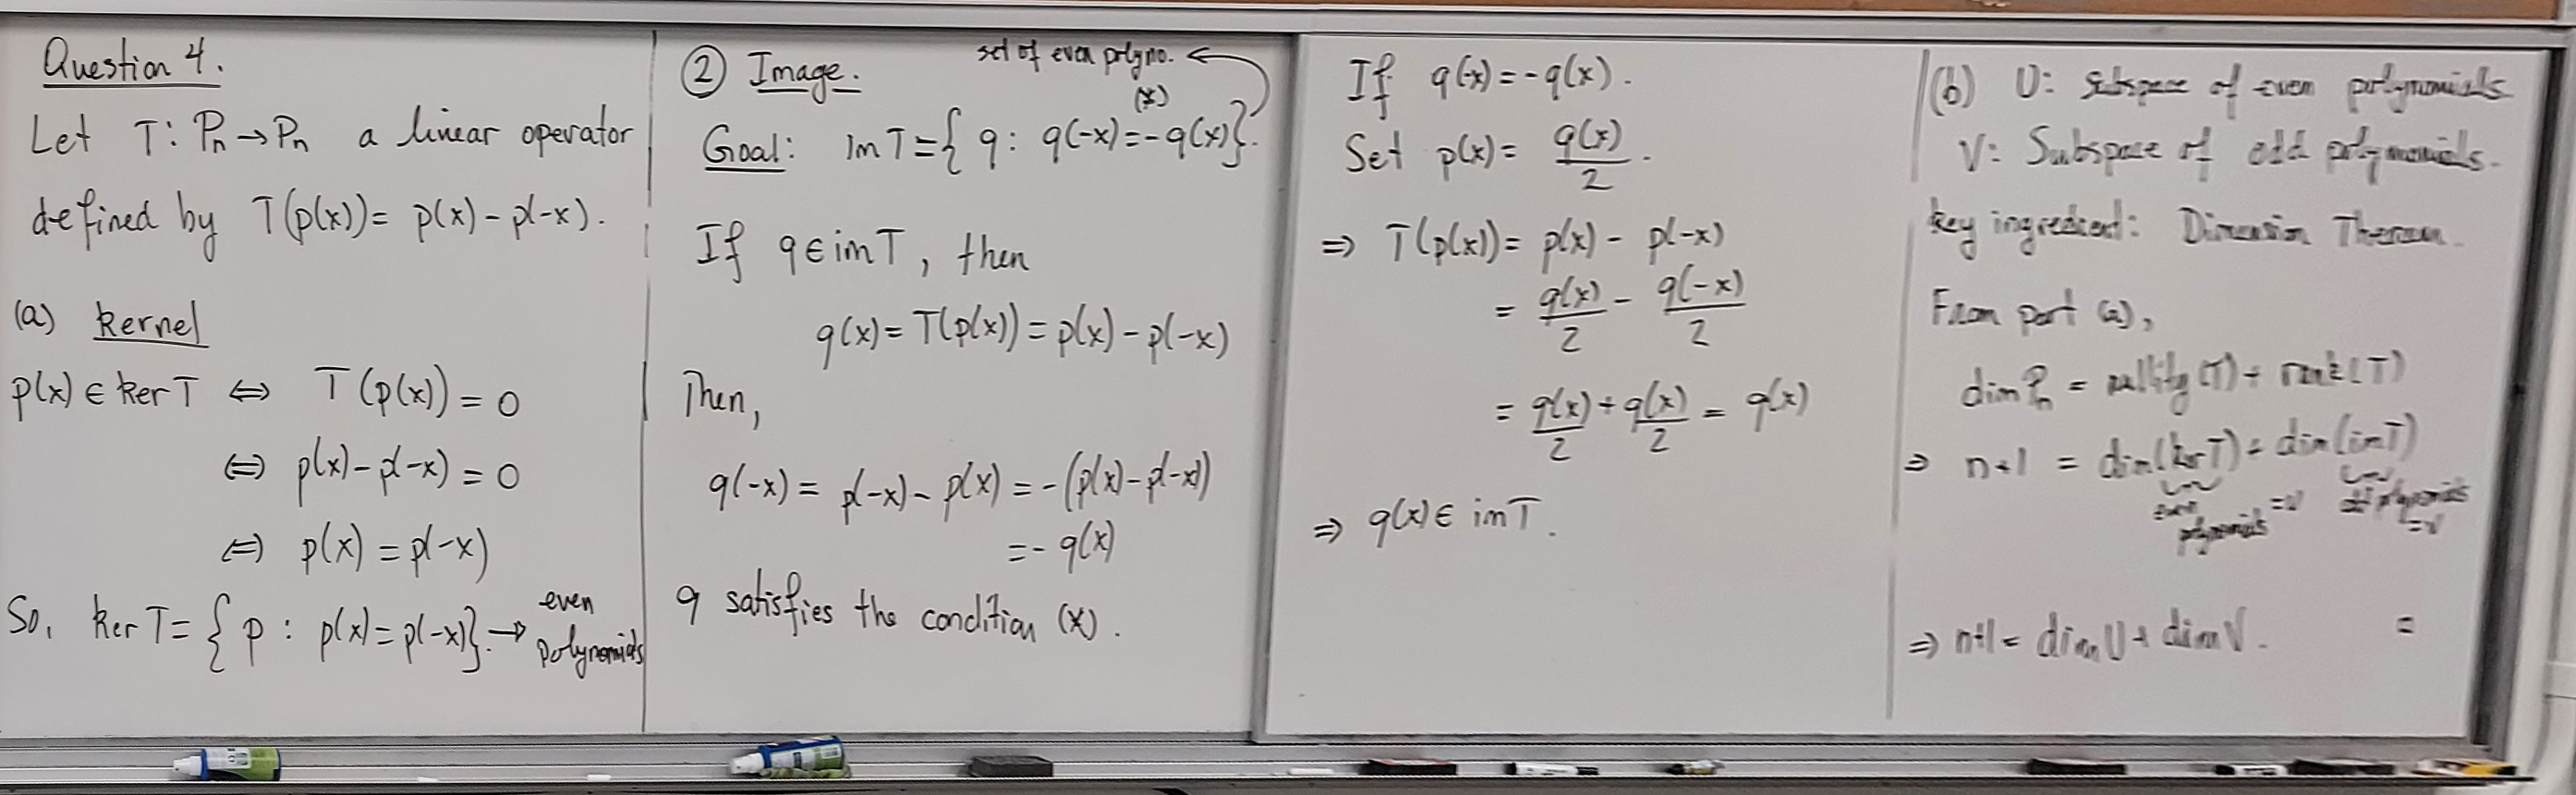 Question 4.
Let T: Pn → Pn a linear operator
defined by T(p(x)) = p(x) - p(-x).
(a) kernel
p(x) ∈ ker T ⇔ T(p(x)) = 0
⇔ p(x) - p(-x) = 0
⇔ p(x) = p(-x)
So, ker T = { p : p(x) = p(-x)}. → even polynomials
② Image.
set of even polyno. ←
(*)
Goal: im T = { q : q(-x) = -q(x)}.
If q ∈ im T, then
q(x) = T(p(x)) = p(x) - p(-x)
Then,
q(-x) = p(-x) - p(x) = -(p(x) - p(-x))
= - q(x)
q satisfies the condition (*).
If q(-x) = -q(x).
Set p(x) = q(x)/2.
⇒ T(p(x)) = p(x) - p(-x)
= q(x)/2 - q(-x)/2
= q(x)/2 + q(x)/2 = q(x)
⇒ q(x) ∈ im T.
(b) U: Subspace of even polynomials
V: Subspace of odd polynomials.
key ingredient: Dimension Theorem.
From part (a),
dim Pn = nullity(T) + rank(T)
⇒ n+1 = dim(ker T) + dim(im T)
even polynomials = U
odd polynomials = V
⇒ n+1 = dim U + dim V.
=